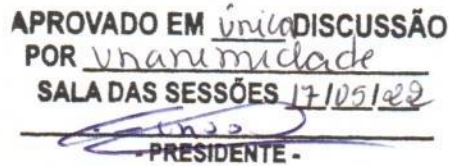 APROVADO EM única DISCUSSÃO
POR unanimidade
SALA DAS SESSÕES 17/05/22
- PRESIDENTE -